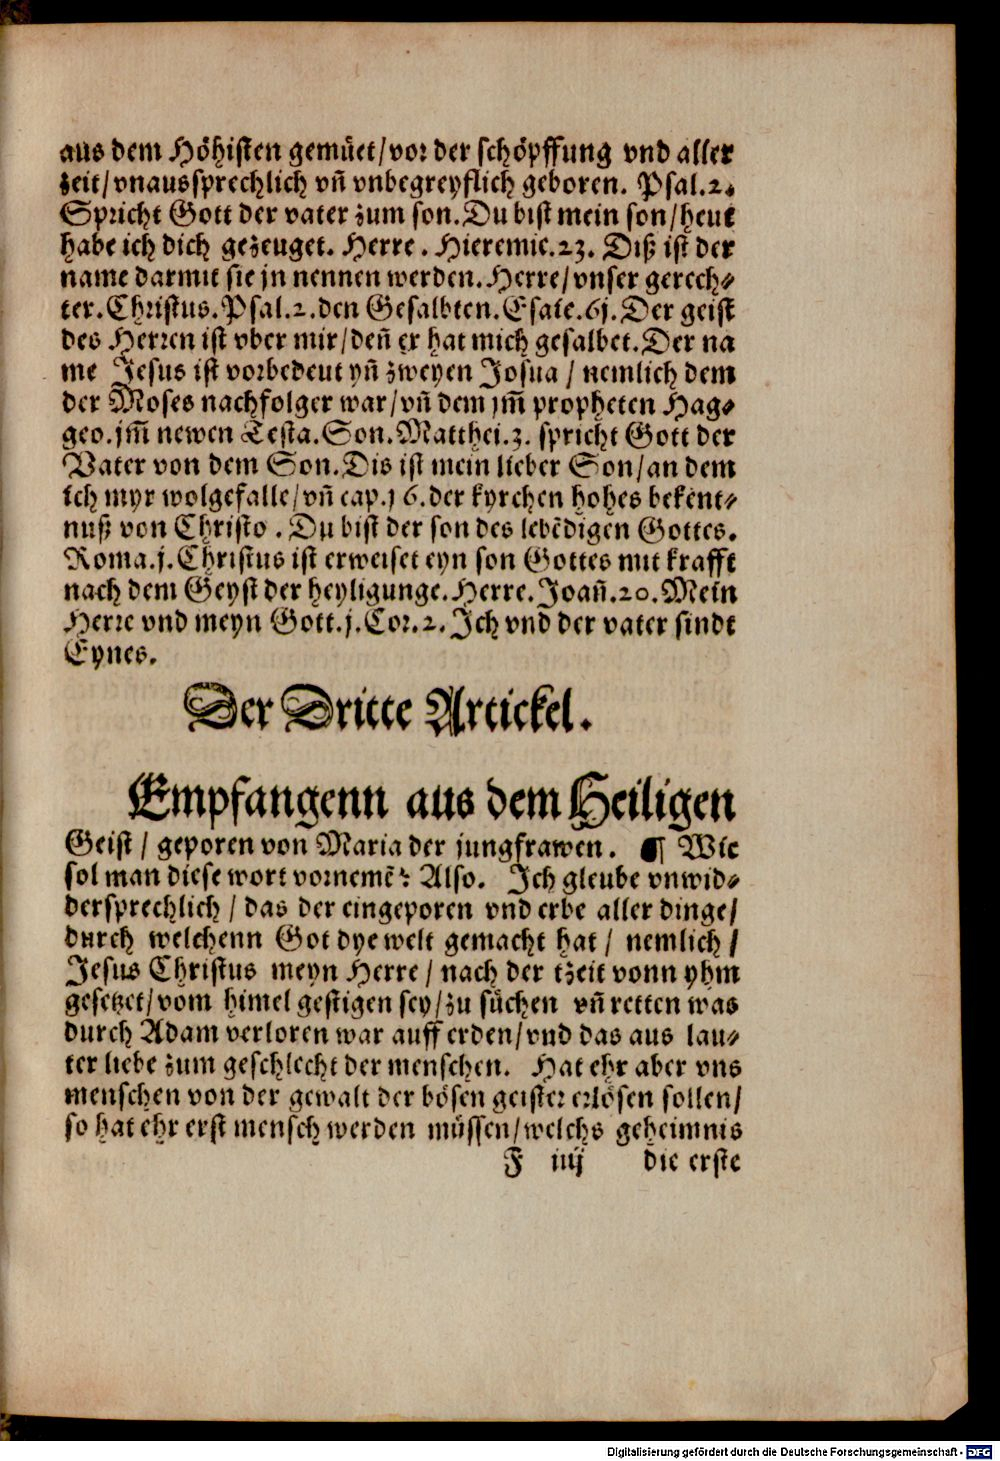 aus dem Höhisten gemüet/vor der schöpffung vnd aller
zeit/vnaussprechlich vñ vnbegreyflich geboren. Psal.2.
Spricht Gott der vater zum son. Du bist mein son/heut
habe ich dich gezeuget. Herre. Hieremie.23. Diß ist der
name darmit sie jn nennen werden. Herre/vnser gerech⸗
ter. Christus. Psal.2. den Gesalbten. Esaie.6j. Der geist
des Herren ist vber mir/deñ er hat mich gesalbet. Der na
me Jesus ist vorbedeut yñ zweyen Josua / nemlich dem
der Moses nachfolger war/vñ dem jm̃ propheten Hag⸗
geo. jm̃ newen Testa. Son. Matthei.3. spricht Gott der
Vater von dem Son. Dis ist mein lieber Son/an dem
ich myr wolgefalle/vñ cap.j6. der kyrchen hohes bekent⸗
nuß von Christo. Du bist der son des lebẽdigen Gottes.
Roma.j. Christus ist erweiset eyn son Gottes mit krafft
nach dem Geyst der heyligunge. Herre. Joañ.20. Mein
Herre vnd meyn Gott. j. Cor.2. Ich vnd der vater sindt
Eynes.
Der Dritte Artickel.
Empfangenn aus dem Heiligen
Geist / geporen von Maria der jungfrawen. ¶ Wie
sol man diese wort vornemẽ? Also. Ich gleube vnwid⸗
dersprechlich / das der eingeporen vnd erbe aller dinge/
durch welchenn Got dye welt gemacht hat / nemlich /
Jesus Christus meyn Herre / nach der tzeit vonn yhm
gesetzet/vom himel gestigen sey/zu süchen vñ retten was
durch Adam verloren war auff erden/vnd das aus lau⸗
ter liebe zum geschlecht der menschen. Hat ehr aber vns
menschen von der gewalt der bösen geister erlösen sollen/
so hat ehr erst mensch werden müssen/welchs geheimnis
F iiij die erste
Digitalisierung gefördert durch die Deutsche Forschungsgemeinschaft - DFG